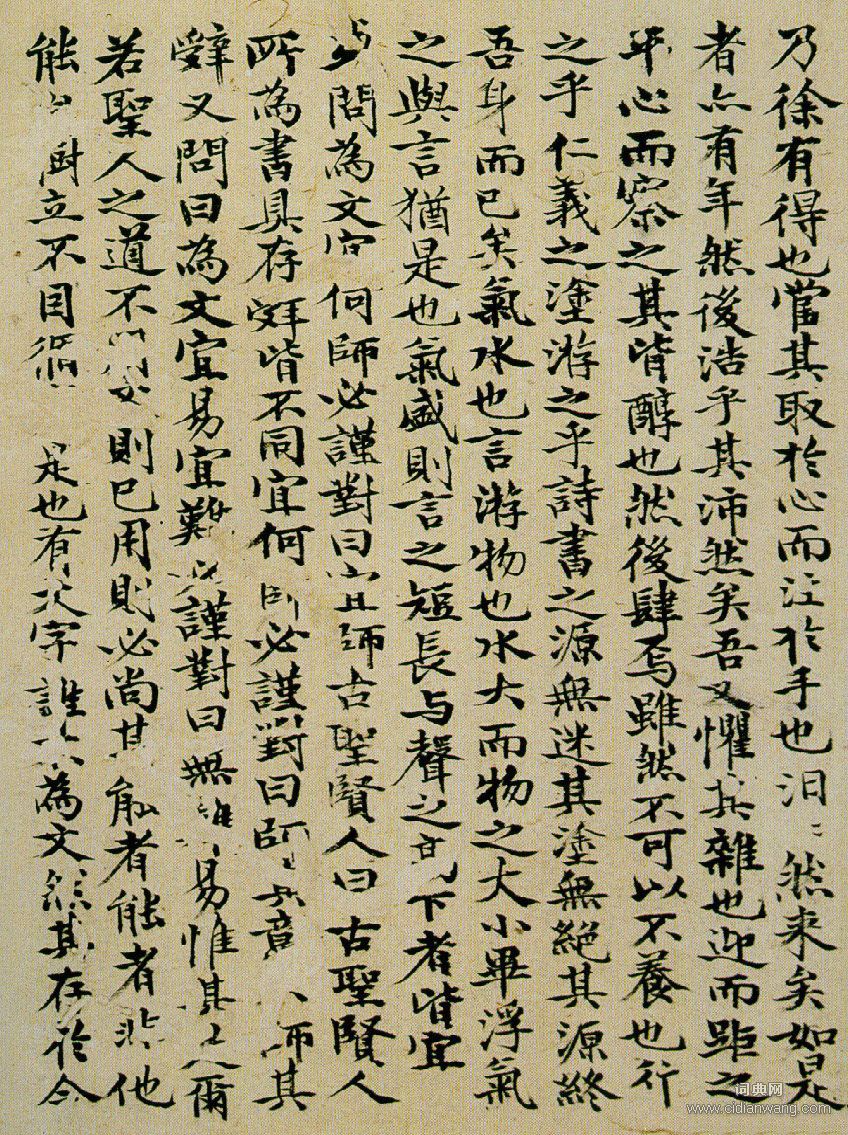 乃徐有得也當其取於心而注於手也汩〻然来矣如是
者亦有年然後浩乎其沛然矣吾又懼其雜也迎而距之
平心而察之其皆醇也然後肆焉雖然不可以不養也行
之乎仁義之塗游之乎詩書之源無迷其塗無絕其源終
吾身而已矣氣水也言游物也水大而物之大小畢浮氣
之與言猶是也氣盛則言之短長与聲之高下者皆宜
問為文宜何師必謹對曰宜師古聖賢人曰古聖賢人
所為書具存辭皆不同宜何師必謹對曰師其意師其
辭又問曰為文宜易宜難必謹對曰無難易惟其是爾
若聖人之道不用文則已用則必尚其能者能者非他
能樹立不因循是也有文字誰不為文然其存於今
词典网
www.cidianwang.com